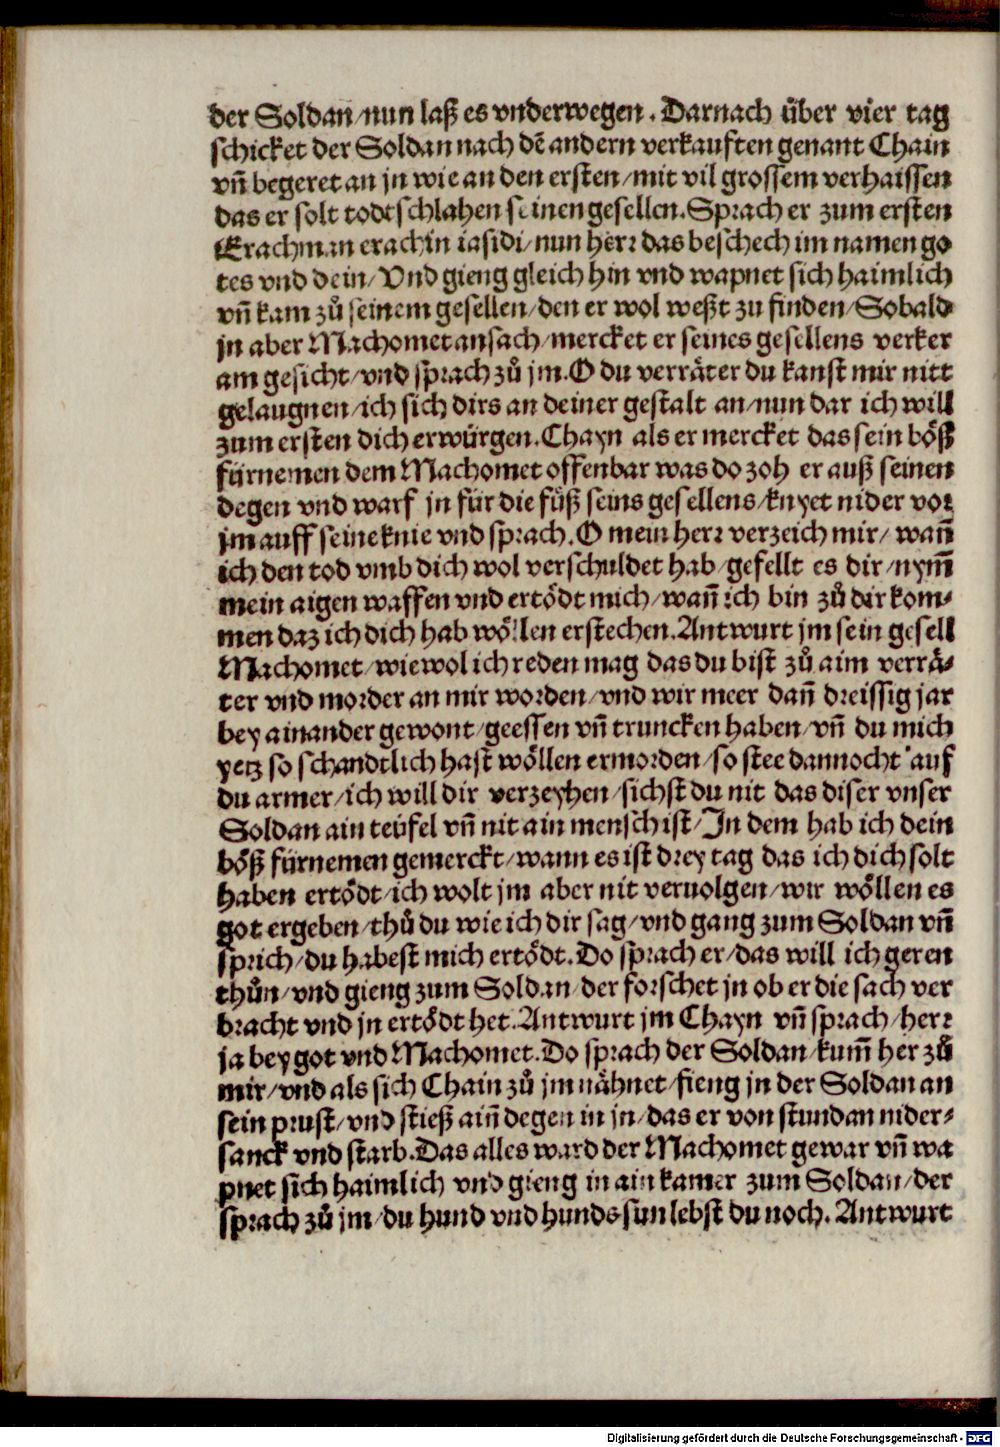 der Soldan/nun laß es vnderwegen. Darnach über vier tag
schicket der Soldan nach dē andern verkauften genant Chain
vn̄ begeret an jn wie an den ersten/mit vil grossem verhaissen
das er solt todtschlahen seinen gesellen. Sprach er zum ersten
Erachman erachin iasidi/nun herr das beschech im namen go
tes vnd dein/Vnd gieng gleich hin vnd wapnet sich haimlich
vn̄ kam zů seinem gesellen/den er wol weßt zu finden/Sobald
jn aber Machomet ansach/mercket er seines gesellens verker
am gesicht/vnd sprach zů jm. O du verräter du kanst mir nitt
gelaugnen/ich sich dirs an deiner gestalt an/nun dar ich will
zum ersten dich erwürgen. Chayn als er mercket das sein böß
fürnemen dem Machomet offenbar was do zoh er auß seinen
degen vnd warf jn für die füß seins gesellens/knyet nider vor
jm auff seine knie vnd sprach. O mein herr verzeich mir/wan̄
ich den tod vmb dich wol verschuldet hab/gefellt es dir/nym̄
mein aigen waffen vnd ertödt mich/wan̄ ich bin zů dir kom⸗
men daz ich dich hab wöllen erstechen. Antwurt jm sein gesell
Machomet/wiewol ich reden mag das du bist zů aim verrä⸗
ter vnd morder an mir worden/vnd wir meer dan̄ dreissig jar
bey ainander gewont/geessen vn̄ truncken haben/vn̄ du mich
yetz so schandtlich hast wöllen ermorden/so stee dannocht auf
du armer/ich will dir verzeyhen/sichst du nit das diser vnser
Soldan ain teüfel vn̄ nit ain mensch ist/In dem hab ich dein
böß fürnemen gemerckt/wann es ist drey tag das ich dich solt
haben ertödt/ich wolt jm aber nit veruolgen/wir wöllen es
got ergeben/thů du wie ich dir sag/vnd gang zum Soldan vn̄
sprich/du habest mich ertödt. Do sprach er/das will ich geren
thůn/vnd gieng zum Soldan/der forschet jn ob er die sach ver
bracht vnd jn ertödt het. Antwurt jm Chayn vn̄ sprach/herr
ja bey got vnd Machomet. Do sprach der Soldan/kum̄ her zů
mir/vnd als sich Chain zů jm nähnet/fieng jn der Soldan an
sein prust/vnd stieß ain̄ degen in jn/das er von stundan nider⸗
sanck vnd starb. Das alles ward der Machomet gewar vn̄ wa
pnet sich haimlich vnd gieng in ain kamer zum Soldan/der
sprach zů jm/du hund vnd hunds sun lebst du noch. Antwurt
Digitalisierung gefördert durch die Deutsche Forschungsgemeinschaft - DFG